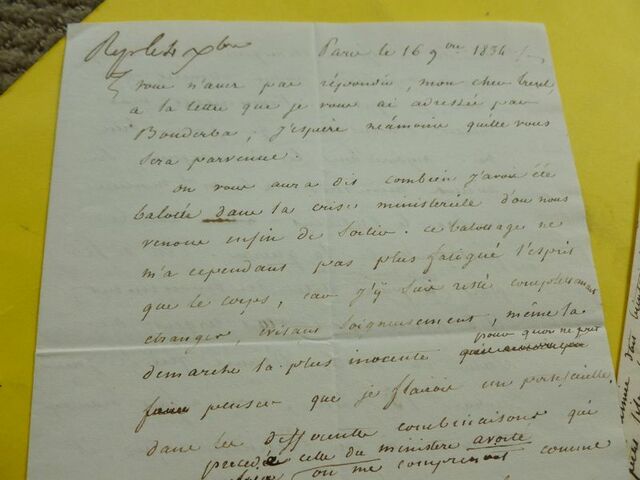 Rep. le 4 Xbre
Paris le 16 9bre 1834
vous n'avez pas répondu, mon cher
a la lettre que je vous ai adressée par
Bouderba, j'espère néamoins qu'elle vous
sera parvenue.
on vous aura dit combien j'avois été
balotté dans la crise ministerielle d'ou nous
venons enfin de sortir. ce balottage ne
m'a cependant pas plus fatigué l'esprit
que le corps, car j'y suis resté completement
etranger, évitant soigneusement, même la
demarche la plus inocente pour qu'on ne put
penser que je flairois un portefeuille.
dans les differentes combinaisons qui
precedé celle du ministère avorté
on me comprenoit comme